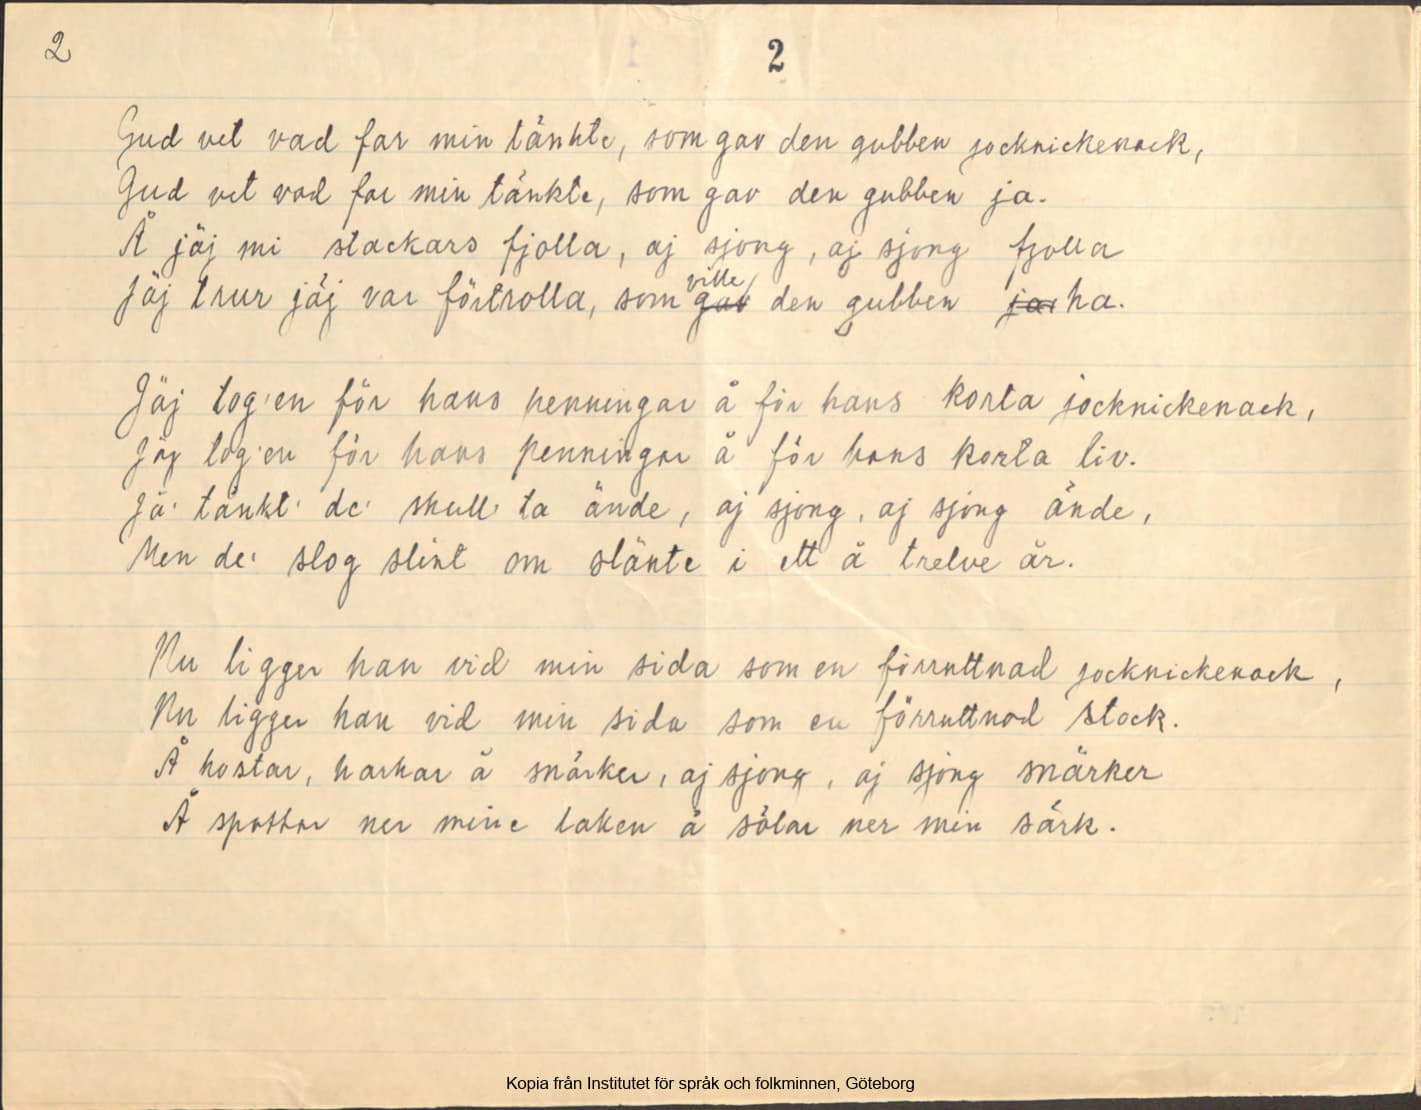 2
2
Gud vet vad far min tänkte, som gav den gubben jocknickenack,
Gud vet vad far min tänkte, som gav den gubben ja.
Å jäj mi stackars fjolla, aj sjong, aj sjong fjolla
Jäj trur jäj var förtrolla, som gav ville den gubben ja ha.
Jäj tog'en för hans penningar å för hans korta jocknickenack,
Jäj tog'en för hans penningar å för hans korta liv.
Jä' tänkt' de' skull' ta ände, aj sjong, aj sjong ände,
Men de' slog slint om slänte i ett å trelve år.
Nu ligger han vid min sida som en förruttnad jocknickenack,
Nu ligger han vid min sida som en förruttnad stock.
Å hostar, harkar å snärker, aj sjong, aj sjong snärker
Å spottar ner mine laken å sölar ner min särk.
Kopia från Institutet för språk och folkminnen, Göteborg